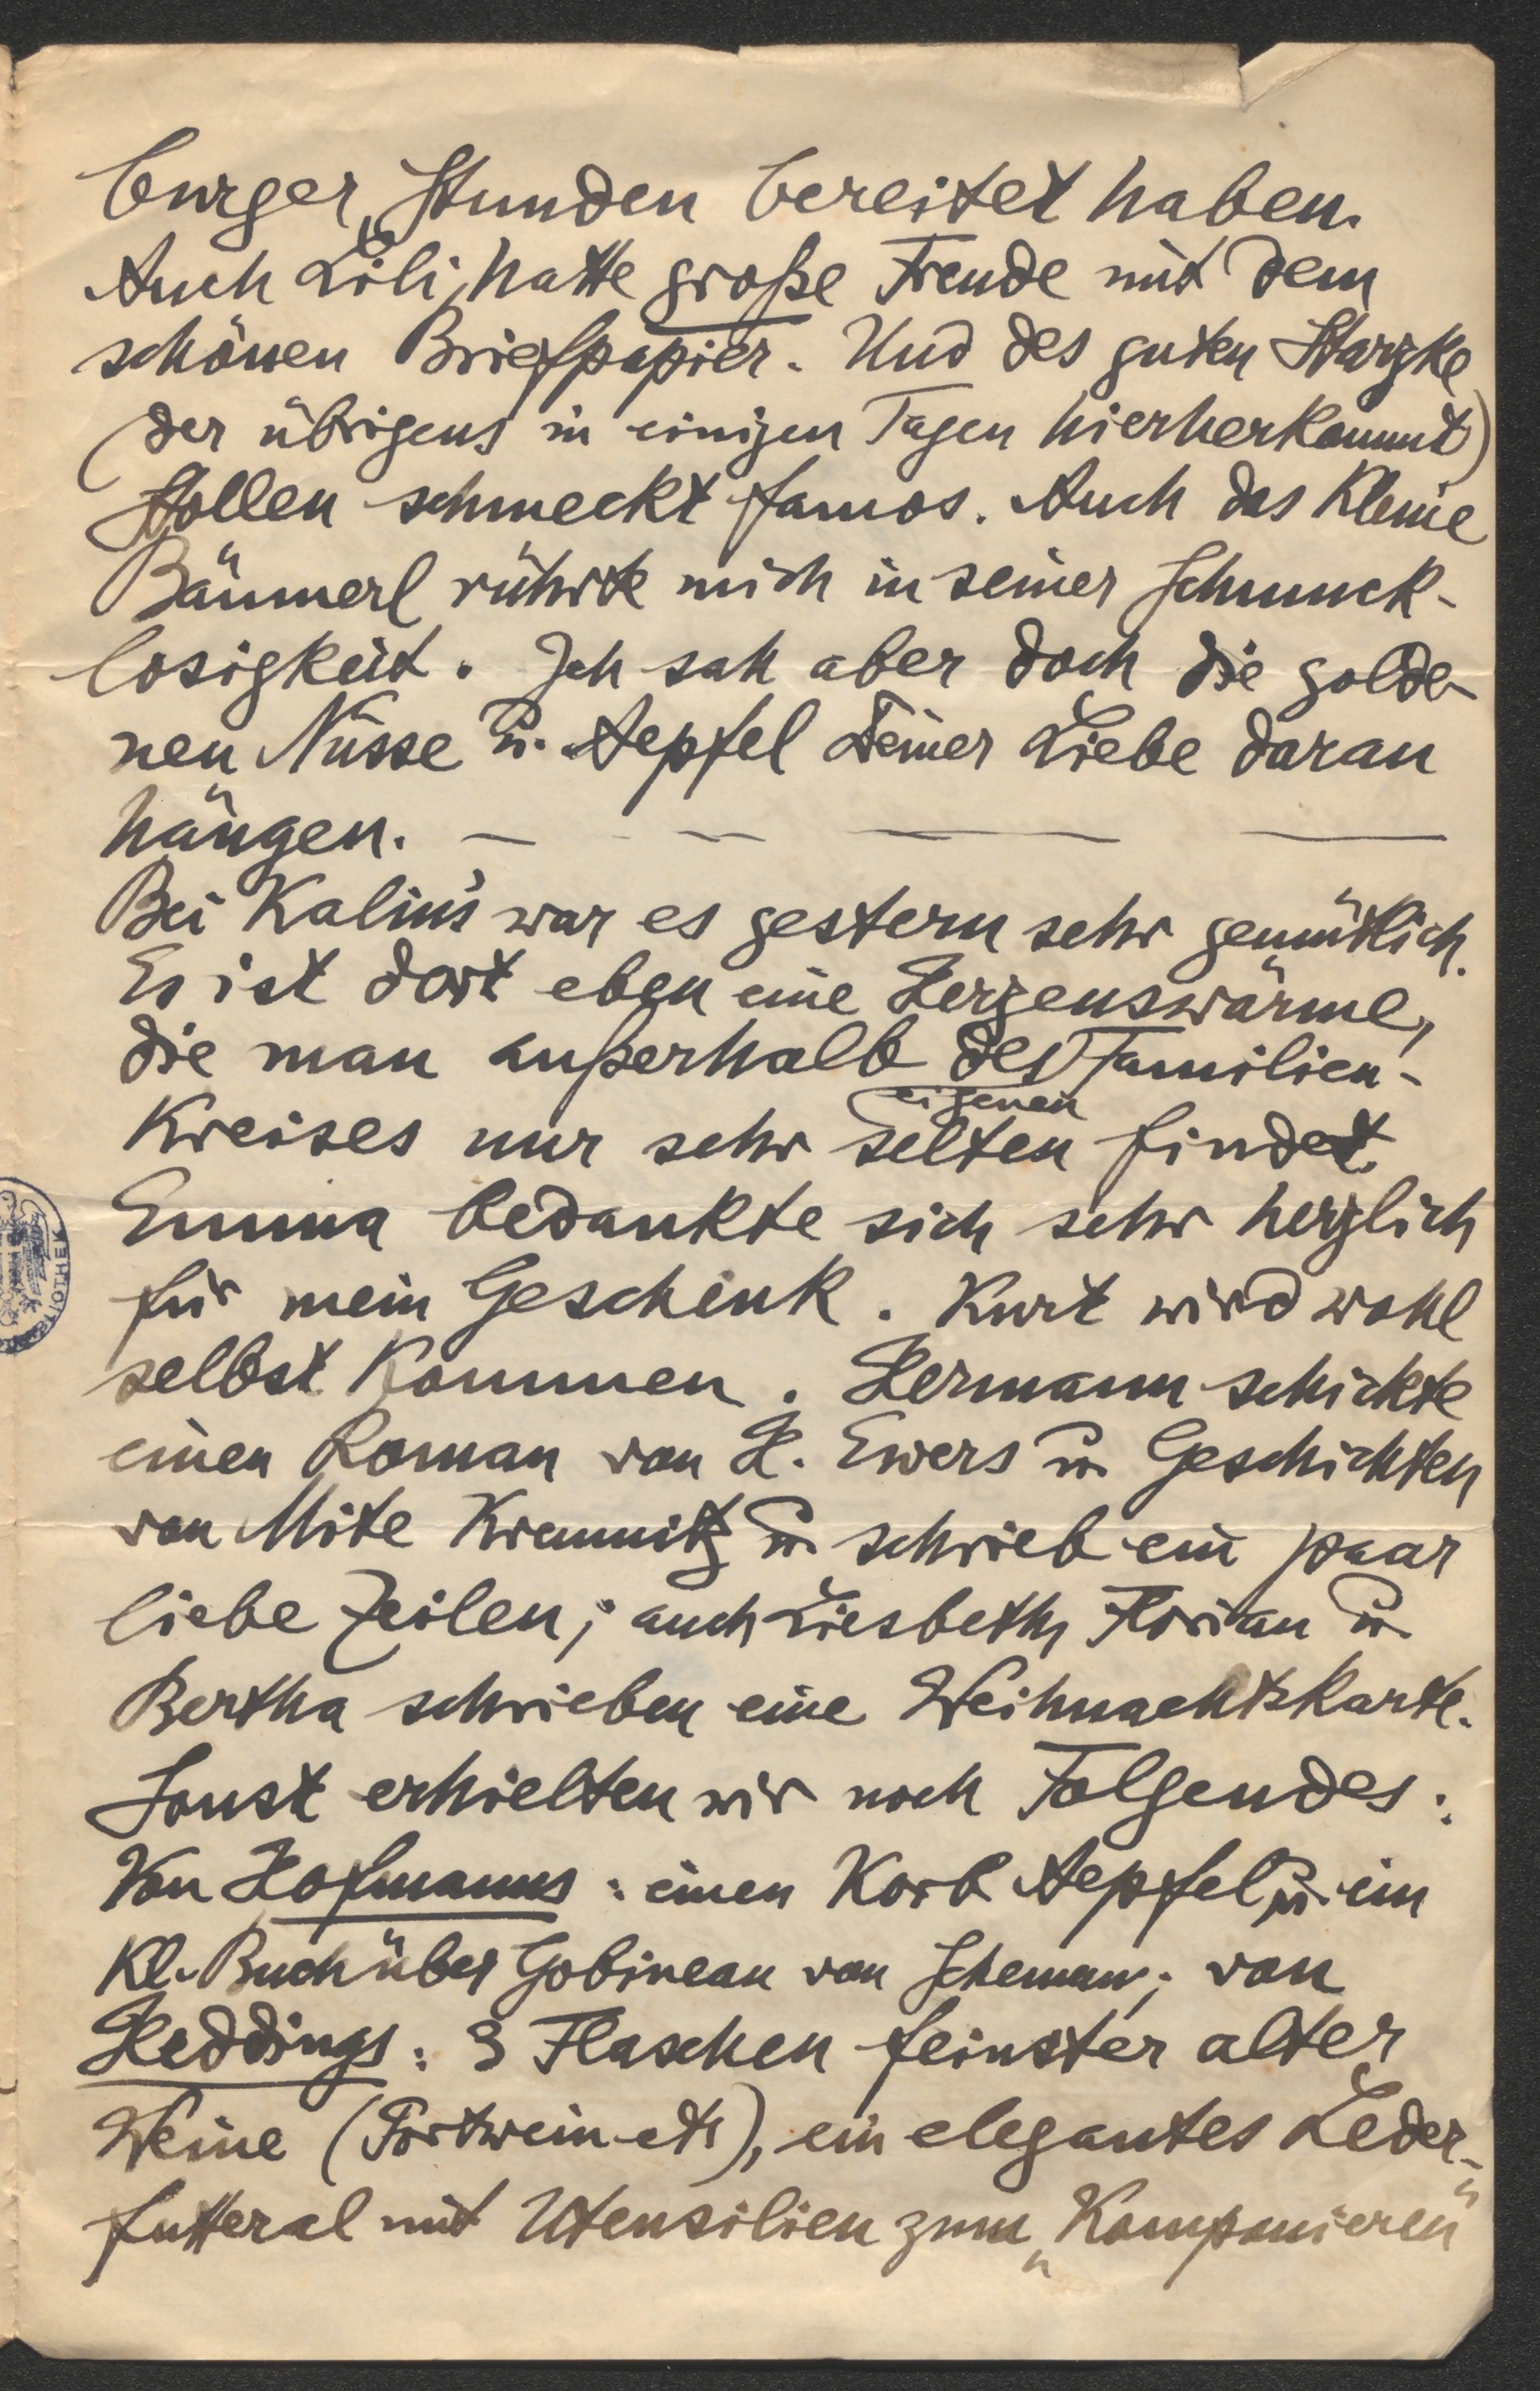 burger Stunden bereitet haben.
Auch Lili hatte große Freude mit dem
schönen Briefpapier. Und des guten Starzke
(der übrigens in einigen Tagen hierherkommt)
Stollen schmeckt famos. Auch das kleine
Bäumerl rührte mich in seiner Schmuck-
losigkeit. Ich sah aber doch die golde-
nen Nüsse u. Aepfel Deiner Liebe daran
hängen. — - — — —
Bei Kalius' war es gestern sehr gemütlich.
Es ist dort eben eine Herzenswärme,
die man außerhalb des Familien-
eigenen
kreises nur sehr selten findet.
Emma bedankte sich sehr herzlich
für mein Geschenk. Kurt wird wohl
selbst kommen. Hermann schickte
einen Roman von H. Ewers u. Geschichten
von Mite Kremnitz u. schrieb ein paar
liebe Zeilen; auch Liesbeth, Florian u.
Bertha schrieben eine Weihnachtskarte.
Sonst erhielten wir noch Folgendes:
Von Hofmanns: einen Korb Aepfel u. ein
kl. Buch über Gobineau von Scheman; von
Heddings: 3 Flaschen feinster alter
Weine (Portwein etc), ein elegantes Leder-
futteral mit Utensilien zum „Komponieren"